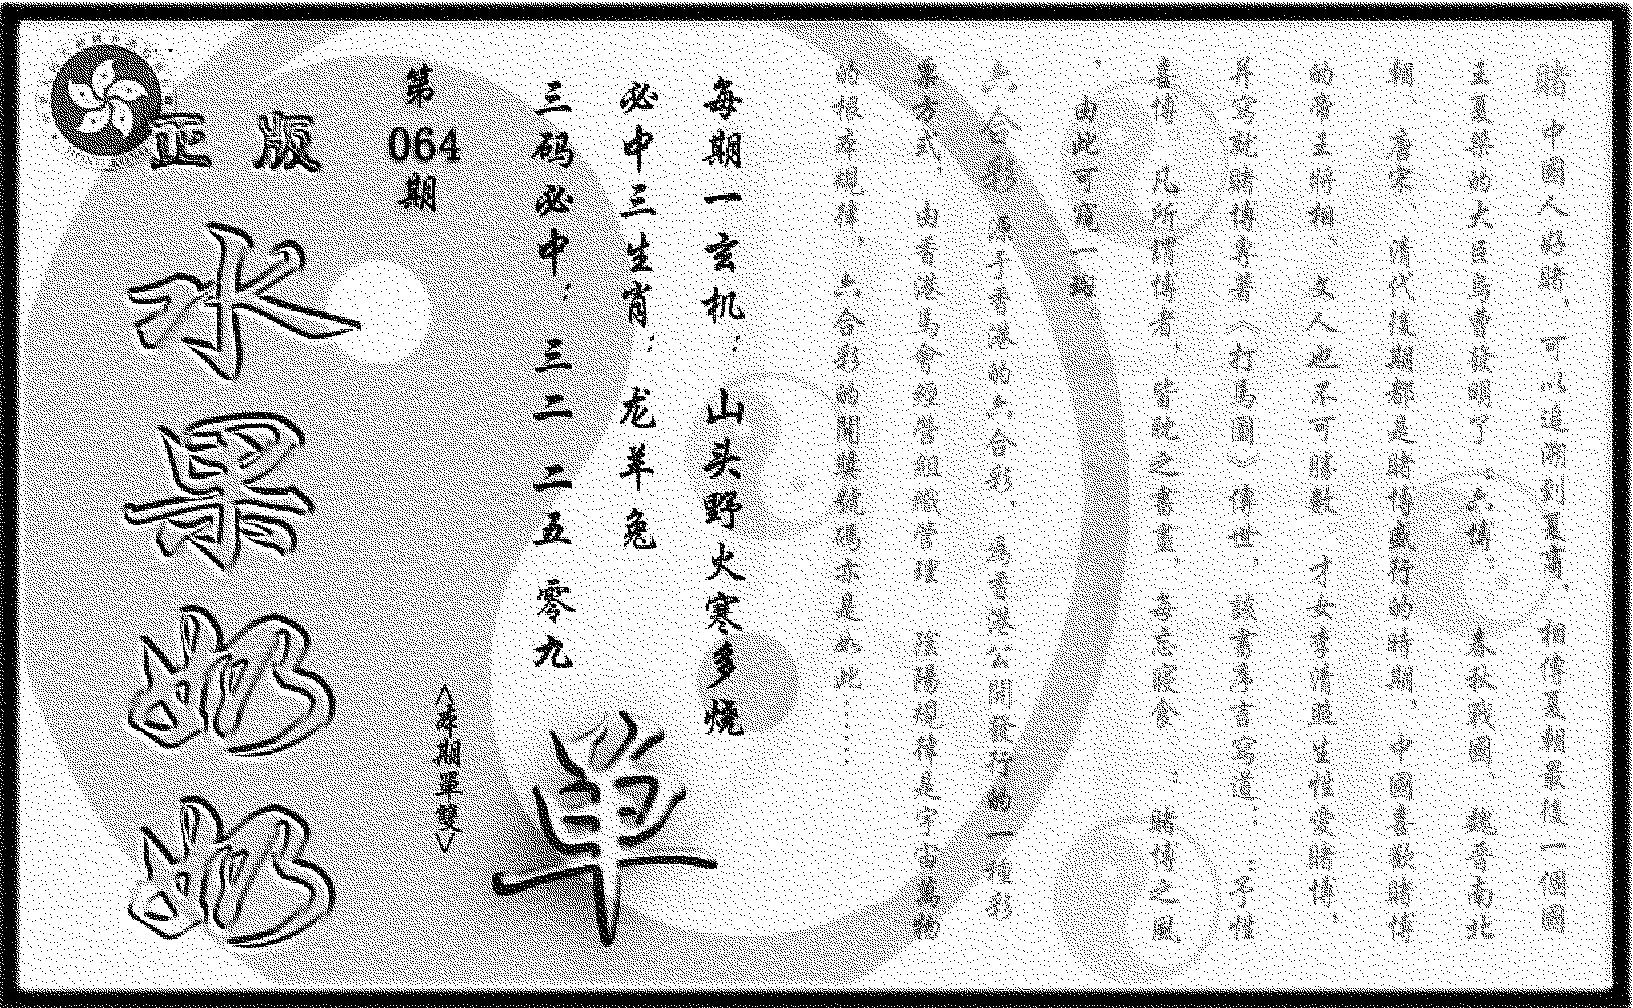 賭 中國人好賭，可以追溯到夏商，相傳夏朝最後一個國
王夏桀的大臣烏曹發明了“六博”。春秋戰國、魏晉南北
朝、唐宋、清代後期都是賭博盛行的時期，中國喜歡賭博
的帝王將相、文人也不可勝數，才女李清照生性愛賭博，
并寫就賭博專著《打馬圖》傳世，該書序言寫道：“予性
喜博，凡所謂博者，皆耽之書畫，每忘寢食”。賭博之風
，由此可窺一斑。
六合彩 源于香港的六合彩，為香港公開發行的一種彩
票方式，由香港馬會經營組織管理。陰陽規律是宇宙萬物
的根本規律，六合彩的開獎號碼亦是如此……
每期一玄机：山头野火寒多烧
必中三生肖：龙羊兔
三码必中：三二 二五 零九
单
<本期單雙>
第064期
正版
水果奶奶